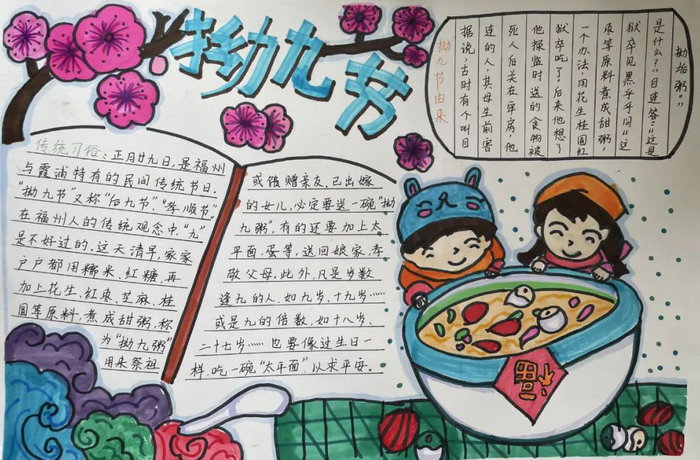 拗九节
拗九节由来
据说，古时有个叫目
连的人，其母生前害
死人后关在牢房，他
他探监时送的食物被
狱卒吃了。后来他想了
一个办法，用花生桂圆红
枣等原料煮成甜粥，
狱卒见黑乎乎问"这
是什么？"目连答："这是
拗垢粥。"
传统习俗：正月廿九日，是福州
与霞浦特有的民间传统节日。
"拗九节"又称"后九节""孝顺节"
在福州人的传统观念中，"九"
是不好过的，这天清早，家家
户户都用糯米、红糖，再
加上花生、红枣、芝麻、桂
圆等原料，煮成甜粥，称
为"拗九粥"
用来祭祖
或馈赠亲友，已出嫁
的女儿，必定要送一碗"拗
九粥"，有的还要加上太
平面、蛋等，送回娘家孝
敬父母。此外，凡是岁数
逢九的人，如九岁、十九岁……
或是九的倍数，如十八岁、
二十七岁……也要像过生日一
样，吃一碗"太平面"以求平安。
福